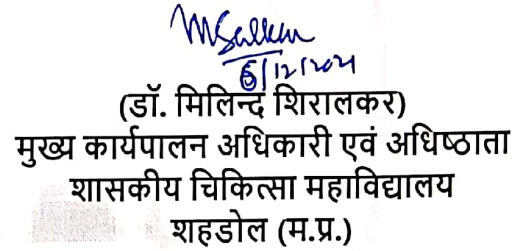 6/12/2021
(डॉ. मिलिन्द शिरालकर)
मुख्य कार्यपालन अधिकारी एवं अधिष्ठाता
शासकीय चिकित्सा महाविद्यालय
शहडोल (म.प्र.)